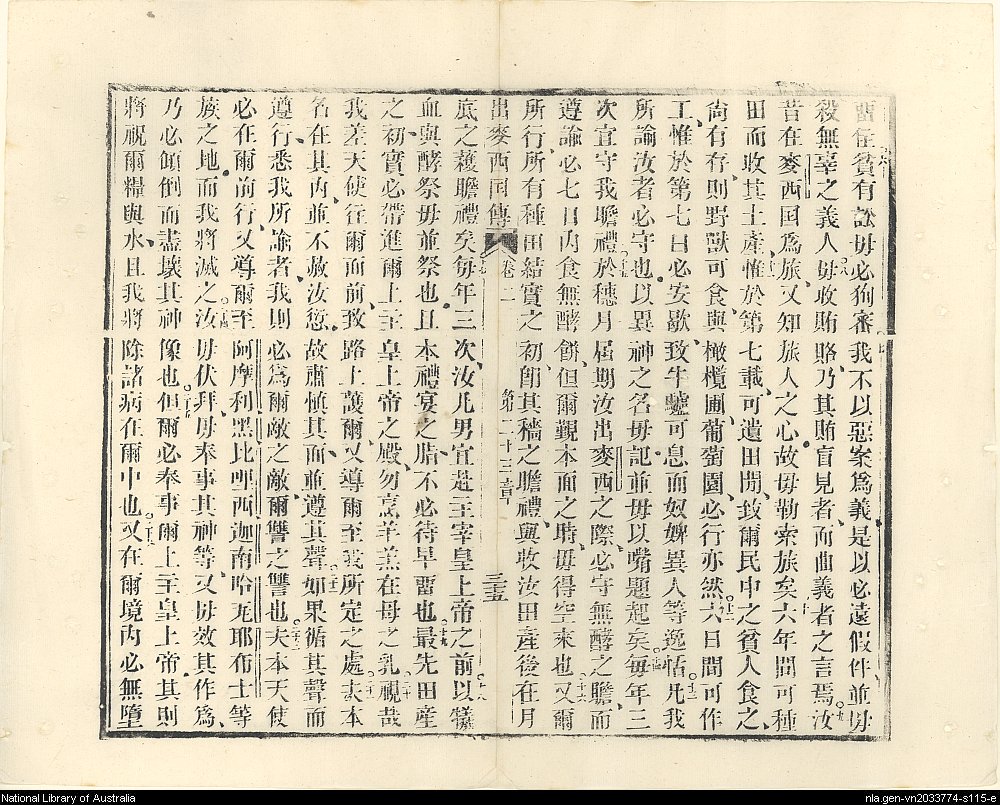 在貧有訟毋必狥審我不以惡案為義是以必遠假件並毋
殺無辜之義人毋收賄賂乃其賄盲見者而曲義者之言焉汝
昔在麥西国為旅又知旅人之心故毋勒索旅矣六年間可種
田而收其土產惟於第七載可遺田閒致爾民中之貧人食之
尚有存則野獸可食與橄欖圃葡萄園必行亦然六日間可作
工惟於第七日必安歇致牛驢可息而奴婢異人等逸恬凡我
所諭汝者必守也以異神之名毋記並毋以嘴題起矣每年三
次宜守我瞻禮於穗月屆期汝出麥西之際必守無酵之瞻而
遵諭必七日內食無酵餅但爾覲本面之時毋得空來也又爾
所行所有種田結實之初卽其穡之瞻禮與收汝田產後在月
出麥西国傳 卷二 第二十三章 三十五
底之穫瞻禮矣每年三次汝凡男宜赴主宰皇上帝之前以犧
血與酵祭毋並祭也且本禮宴之脂不必待早留也最先田產
之初實必帶進爾上主皇上帝之殿勿烹羊羔在母之乳視哉
我差天使往爾面前致路上護爾又導爾至我所定之處夫本
名在其內並不赦汝愆故肅慎其而並遵其聲如果循其聲而
遵行悉我所諭者我則必為爾敵之敵爾讐之讐也夫本天使
必在爾前行又導爾至阿摩利黑比哩西迦南哈耶布士等
族之地而我將滅之汝毋伏拜毋奉事其神等又毋效其作為
乃必傾倒而盡壞其神像也但爾必奉事爾上主皇上帝其則
將祝爾糧與水且我將除諸病在爾中也又在爾境內必無墮
National Library of Australia
nla.gen-vn2033774-s115-e